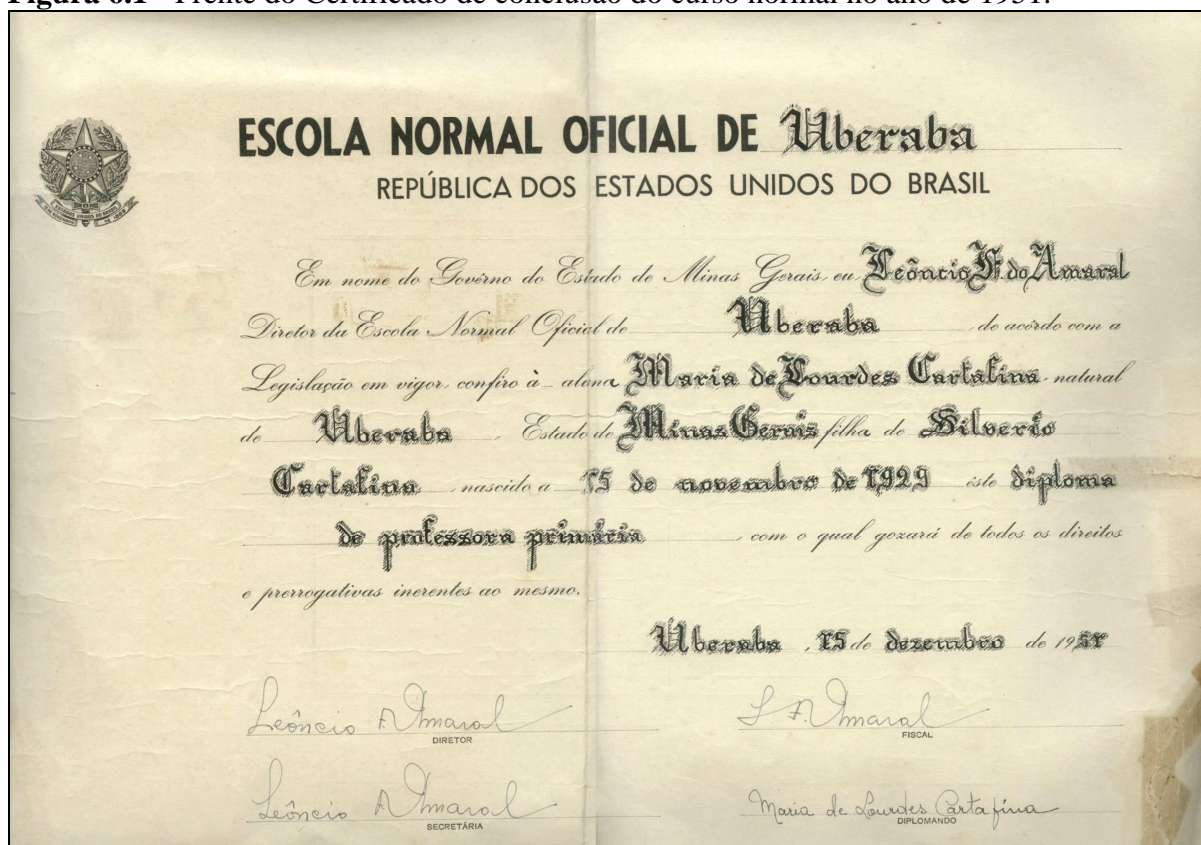 Figura 6.1 - Frente do Certificado de conclusão do curso normal no ano de 1951.
ESCOLA NORMAL OFICIAL DE Uberaba
REPÚBLICA DOS ESTADOS UNIDOS DO BRASIL
ESTADOS UNIDOS DO BRASIL
Em nome do Govêrno do Estado de Minas Gerais, eu Leôncio F. do Amaral
Diretor da Escola Normal Oficial de Uberaba de acôrdo com a
Legislação em vigor, confiro à aluna Maria de Lourdes Cartafina natural
de Uberaba, Estado de Minas Gerais filha de Silverio
Cartafina nascido a 15 de novembro de 1929 êste diploma
de professora primária com o qual gozará de todos os direitos
e prerrogativas inerentes ao mesmo.
Uberaba, 15 de dezembro de 1951
Leôncio F. Amaral L F. Amaral
DIRETOR FISCAL
Leôncio F. Amaral Maria de Lourdes Cartafina
SECRETÁRIA DIPLOMANDO